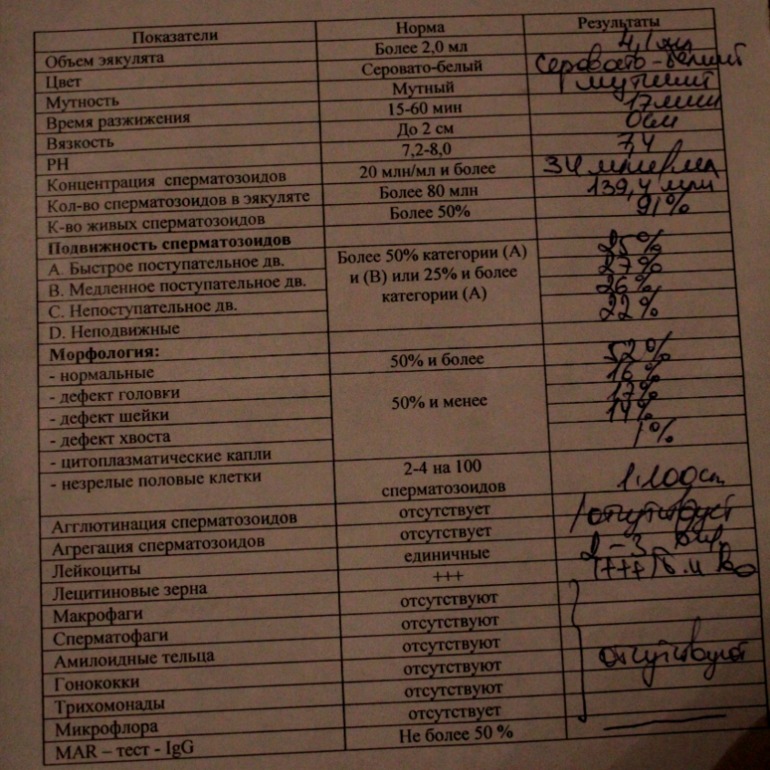 Показатели Норма Результаты
Объем эякулята Более 2,0 мл 4,1 мл
Цвет Серовато-белый серовато-белый
Мутность Мутный мутный
Время разжижения 15-60 мин 17 мин
Вязкость До 2 см 0 см
РН 7,2-8,0 7,4
Концентрация сперматозоидов 20 млн/мл и более 34 млн/мл
Кол-во сперматозоидов в эякуляте Более 80 млн 139,4 млн
К-во живых сперматозоидов Более 50% 91%
Подвижность сперматозоидов
А. Быстрое поступательное дв. Более 50% категории (А) 25%
В. Медленное поступательное дв. и (В) или 25% и более 27%
С. Непоступательное дв. категории (А) 26%
D. Неподвижные 22%
Морфология:
- нормальные 50% и более 52%
- дефект головки 16%
- дефект шейки 50% и менее 17%
- дефект хвоста 14%
- цитоплазматические капли 1%
- незрелые половые клетки 2-4 на 100
сперматозоидов
Агглютинация сперматозоидов отсутствует отсутствует
Агрегация сперматозоидов отсутствует
Лейкоциты единичные 2-3
Лецитиновые зерна +++
Макрофаги отсутствуют
Сперматофаги отсутствуют
Амилоидные тельца отсутствуют отсутствуют
Гонококки отсутствуют
Трихомонады отсутствуют
Микрофлора отсутствует
MAR – тест - IgG Не более 50 %